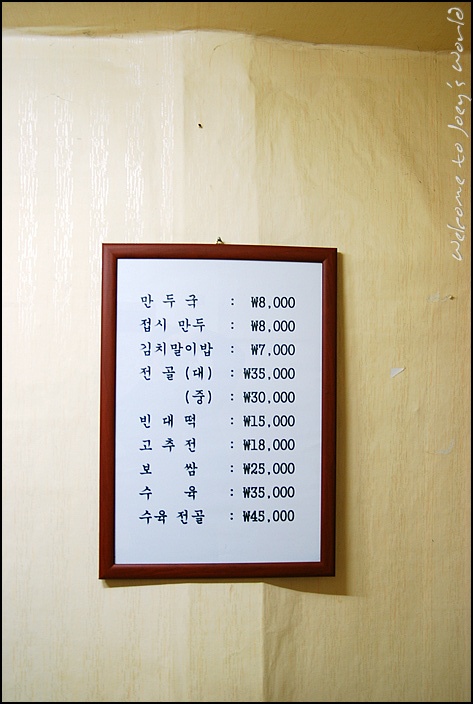 만두국 : ₩8,000
접시 만두 : ₩8,000
김치말이밥 : ₩7,000
전골 (대) : ₩35,000
(중) : ₩30,000
빈대떡 : ₩15,000
고추전 : ₩18,000
보쌈 : ₩25,000
수육 : ₩35,000
수육 전골 : ₩45,000
welcome to Joey's World